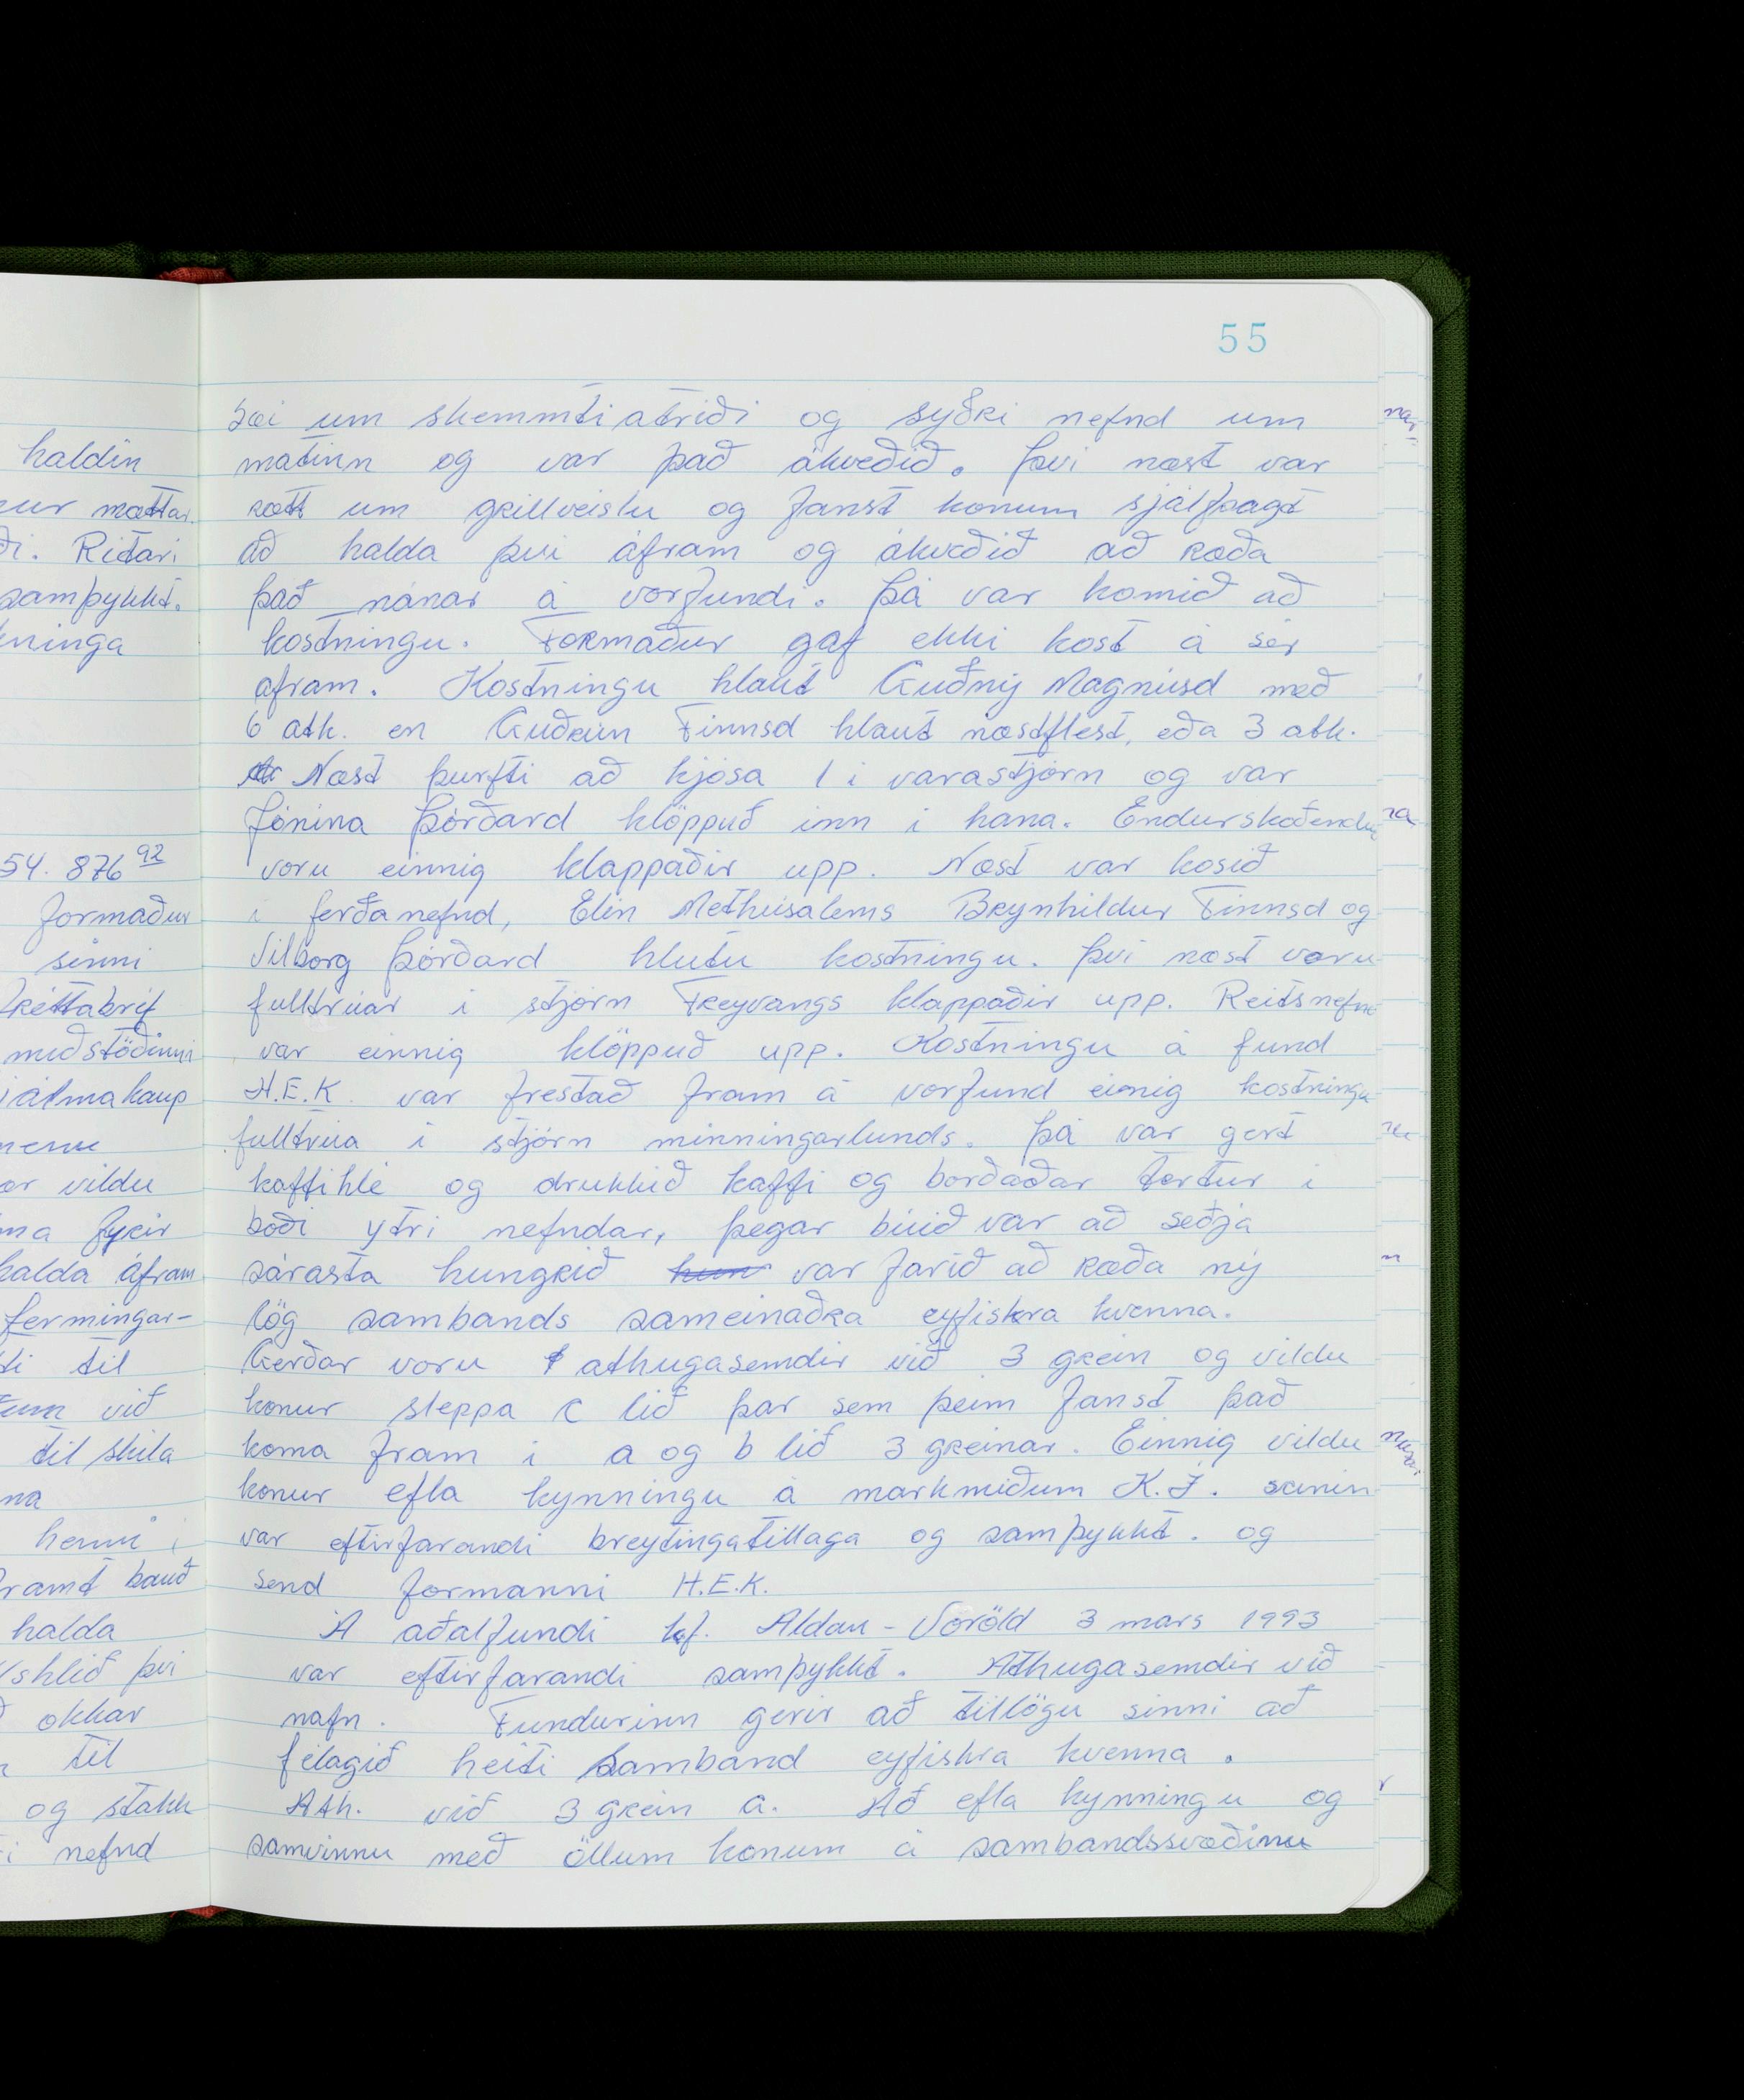 55
sæi um skemmtiatriði og syðri nefnd um
matinn og var það ákveðið. Því næst var
rætt um grillveislu og fanst konum sjálfsagt
að halda því áfram og ákveðið að ræða
það nánar á vorfundi. Þá var komið að
kostningu. Formaður gaf ekki kost á sér
afram. Kostningu hlaut Guðný Magnúsd með
6 atk. en Guðrún Finnsd hlaut næstflest, eða 3 atk.
Næst þurfti að kjósa 1 í varastjórn og var
Jónína Þórðard klöppuð inn í hana. Endurskoðendur
voru einnig klappaðir upp. Næst var kosið
í ferðanefnd, Elín Methúsalems Brynhildur Finnsd og
Vilborg Þórðard hlutu kostningu. Því næst voru
fulltrúar í stjórn Freyvangs klappaðir upp. Reitsnefnd
var einnig klöppuð upp. Kostningu á fund
H.E.K. var frestað fram á vorfund einnig kostningu
fulltrúa í stjórn minningarlunds. Þá var gert
kaffihlé og drukkið kaffi og borðaðar tertur í
boði ytri nefndar, þegar búið var að seðja
sárasta hungrið var farið að ræða ný
lög sambands sameinaðra eyfiskra kvenna.
Gerðar voru athugasemdir við 3 grein og vildu
konur sleppa c lið þar sem þeim fanst það
koma fram í a og b lið 3 greinar. Einnig vildu
konur efla kynningu á markmiðum K.Í. samin
var eftirfarandi breytingatillaga og samþykkt. og
send formanni H.E.K.
Á aðalfundi kf. Aldan - Voröld 3 mars 1993
var eftirfarandi samþykkt. Athugasemdir við
nafn. Fundurinn gerir að tillögu sinni að
félagið heiti Samband eyfiskra kvenna.
Ath. við 3 grein a. Að efla kynningu og
samvinnu með öllum konum á sambandssvæðinu